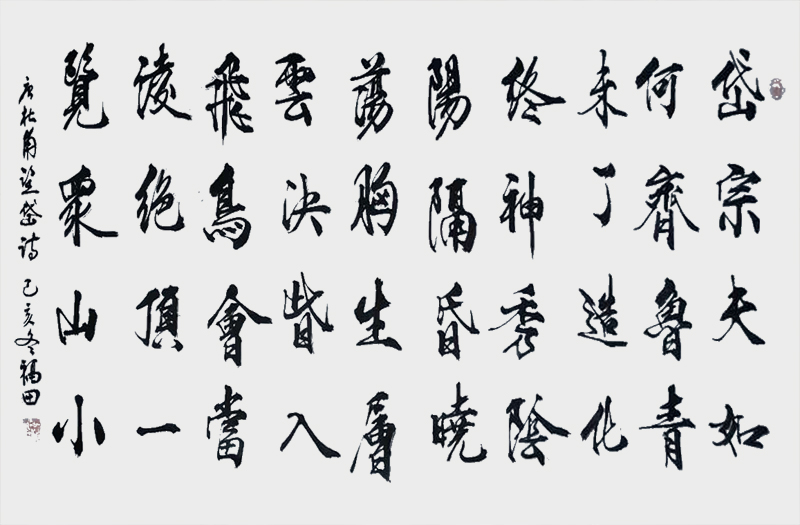 岱宗夫如
何齊魯青
未了造化
終神秀陰
陽隔昏曉
蕩胸生層
雲決眥入
飛鳥會當
淩絶頂一
覽衆山小
唐杜甫望岱詩 己亥冬福田